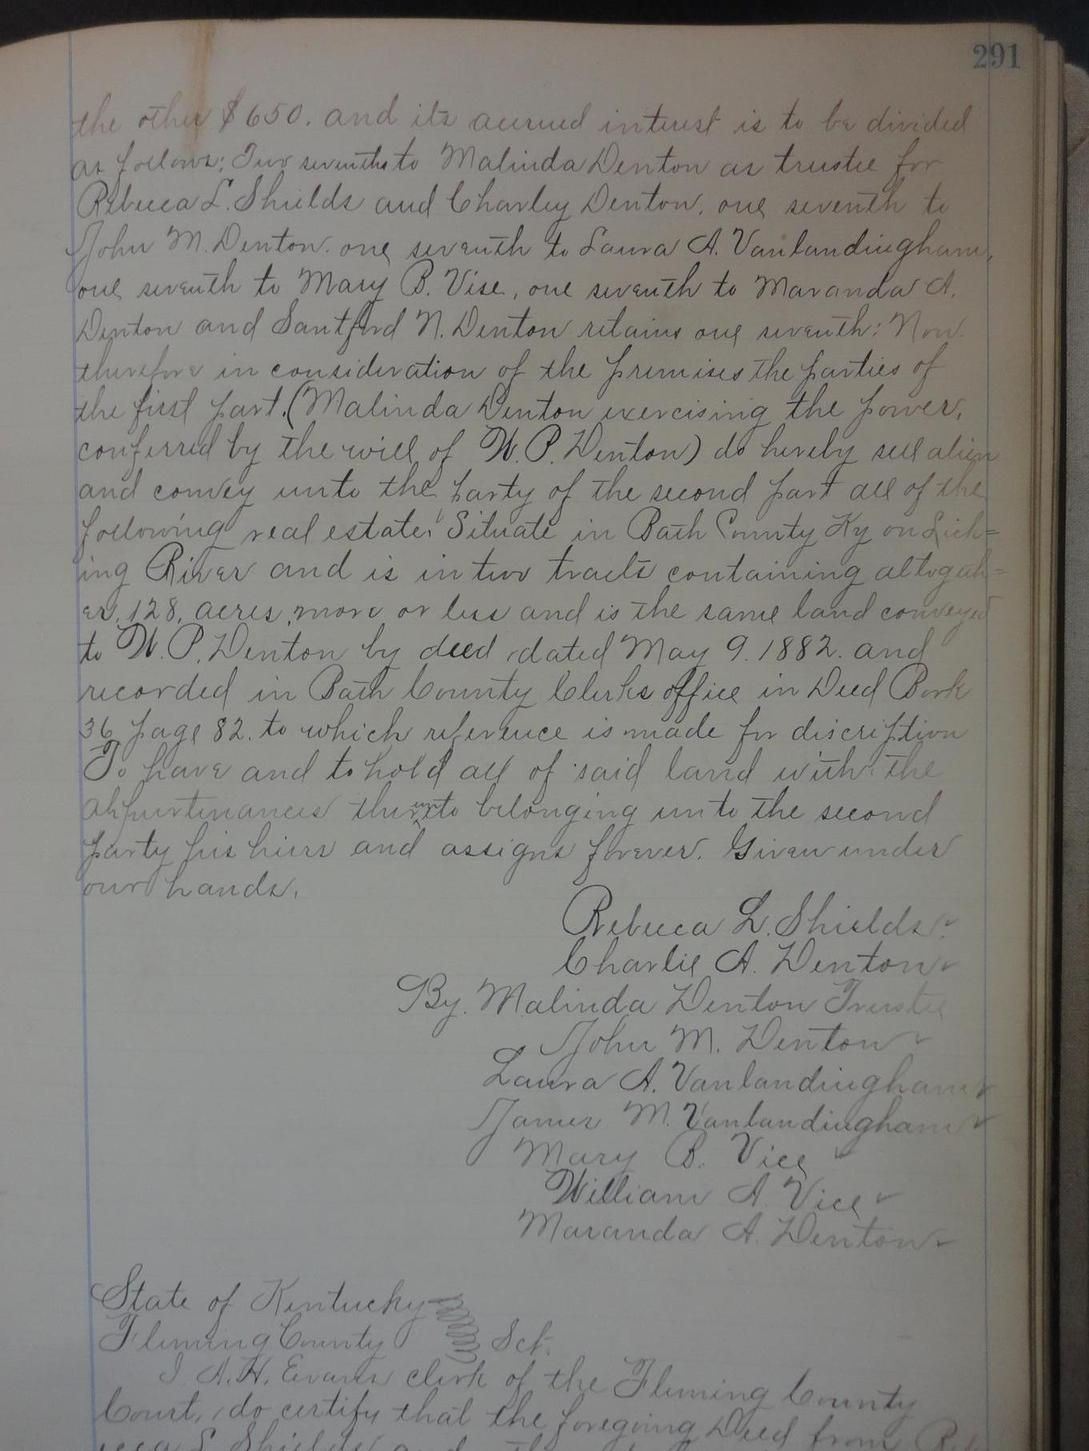 291
the other $650. and its accrued interest is to be divided
as follows: Two sevenths to Malinda Denton as trustee for
Rebecca L. Shields and Charley Denton. one seventh to
John M. Denton. one seventh to Laura A. Vanlandingham,
one seventh to Mary B. Vise, one seventh to Maranda A.
Denton and Santford N. Denton retains one seventh: Now
therefore in consideration of the premises the parties of
the first part. (Malinda Denton exercising the power,
conferred by the will of W. P. Denton) do hereby sell alien
and convey unto the party of the second part all of the
following real estate. Situate in Bath County Ky on Lick=
ing River and is in two tracts containing altogeth=
er. 128. acres, more or less and is the same land conveyed
to W. P. Denton by deed dated May 9. 1882. and
recorded in Bath County Clerks office in Deed Book
36 page 82. to which reference is made for discription
To have and to hold all of said land with the
appurtinances thereunto belonging unto the second
party his heirs and assigns forever. Given under
our hands.
Rebecca L. Shields
Charlie A. Denton
By. Malinda Denton Trustee
John M. Denton
Laura A. Vanlandingham
James M. Vanlandingham
Mary B. Vice
William A. Vice
Maranda A. Denton
State of Kentucky
Fleming County Sct.
I A. H. Evans clerk of the Fleming County
Court, do certify that the foregoing Deed from Reb
ecca L Shields and